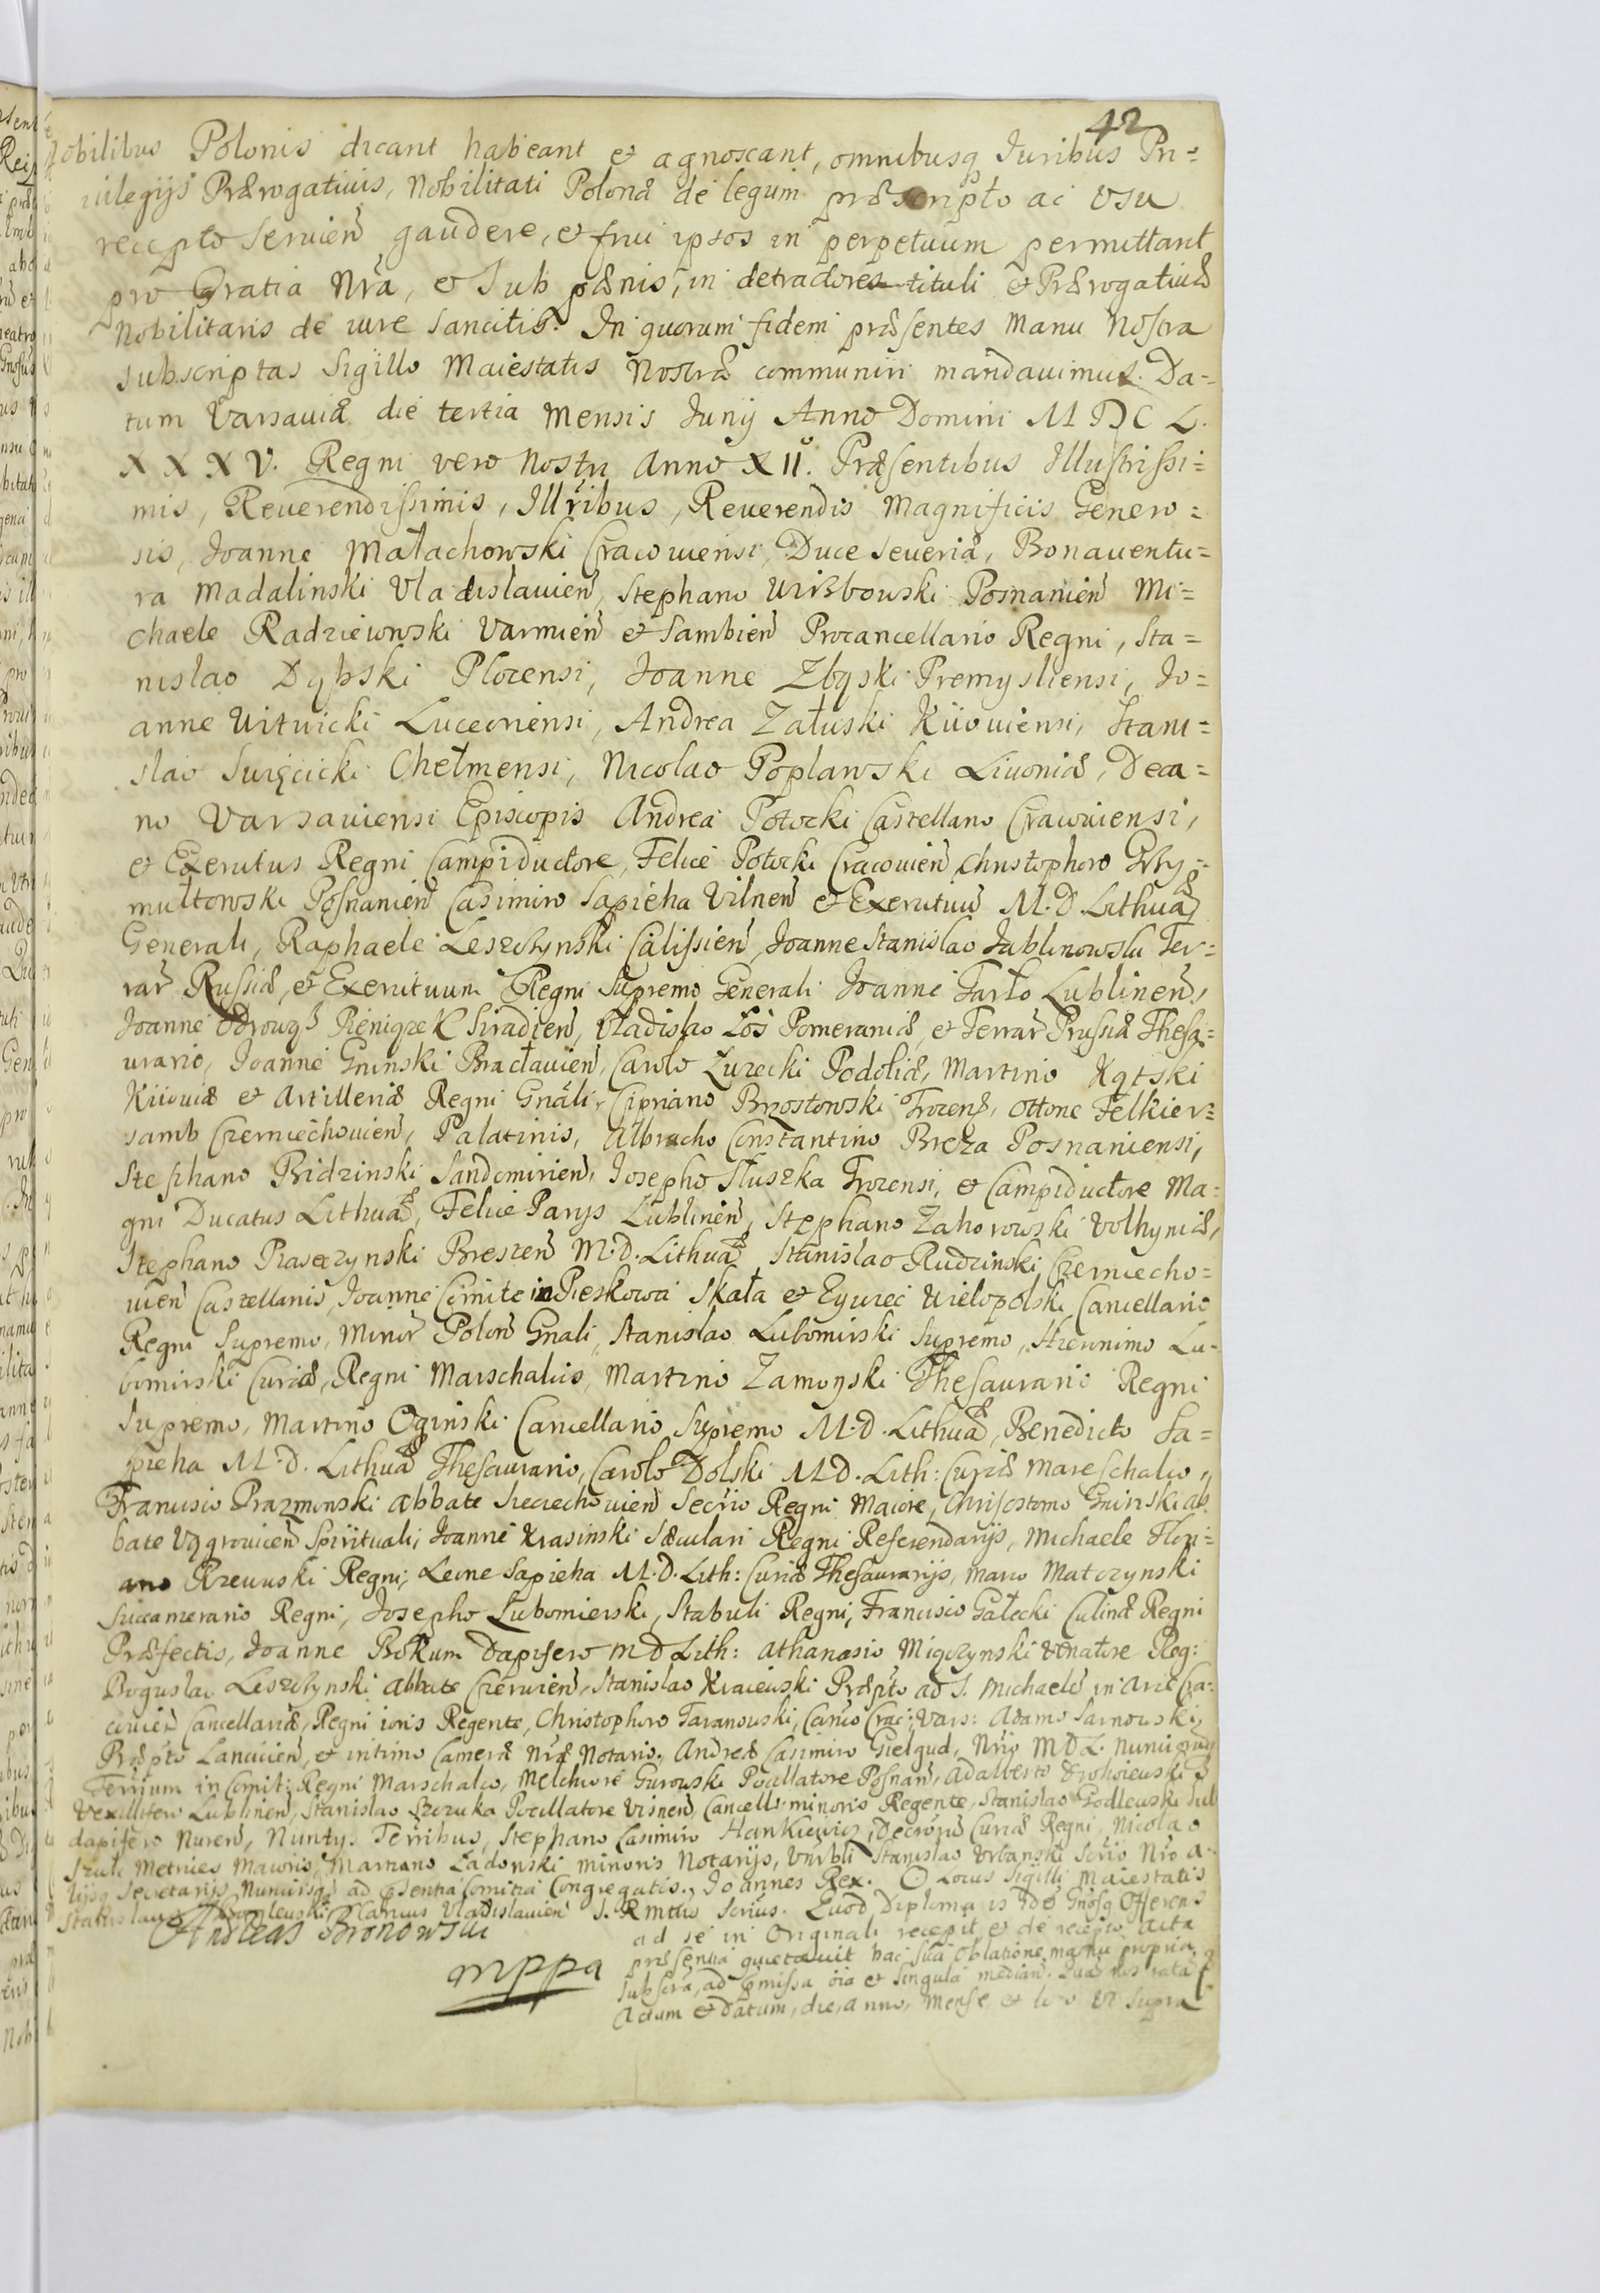 42
obilibus Polonis dicant habeant et agnoscant, omnibusq Iuribus Pri=
uilegijs Prærogatiuis, Nobilitati Polonæ de legum præscripto ac usu
recepto seruien gaudere, et frui ipsos in perpetuum permittant
pro Gratia Nra, et sub pænis, in detractores tituli et Prærogatiuæ
Nobilitaris de iure sancitis. In quorum fidem præsentes Manu Nostra
subscriptas Sigillo Maiestatis Nostræ communiri mandauimus. Da=
tum Varsauiæ die tertia Mensis Iunij Anno Domini M DC L.
X X X V. Regni vero Nostri Anno XII. Præsentibus Illustrissi=
mis, Reuerendissimis, Illribus, Reuerendis Magnificis Genero=
sis, Joanne Małachowski Cracouiensi, Duce Seueriæ, Bonauentu=
ra Madalinski Vladislauien, Stephano Wirzbowski Posnanien Mi=
chaele Radzieiowski Varmien et Sambien Procancellario Regni, Sta=
nislao Dąbski Plocensi, Joanne Zbąski Premysliensi, Jo=
anne Witwicki Luceoriensi, Andrea Załuski Kiiouiensi, Stani=
slao Swięcicki Chełmensi, Nicolao Poplawski Liuoniæ, Deca=
no Varsauiensi Episcopis Andrea Potocki Castellano Cracouiensi,
et Exercitus Regni Campiductore, Felice Potocki Cracouien Christophoro Grzy=
mułtowski Posnanien Casimiro Sapieha Vilnen et Exercituu M. D. Lithuæ
Generali, Raphaele Leszczynski Calissien, Joanne Stanislao Jablonowski Ter=
rar Russiæ, et Exercituum Regni Supremo Generali Joanne Tarło Lublinen,
Joanne Odrowąz Pieniązek Siradien, Vladislao Łoś Pomeraniæ, et Terrar Prussiæ Thesa=
urario, Joanne Gninski Bracłauien, Carolo Łuzecki Podoliæ, Martino Kątski
Kiiouiæ et Artilleriæ Regni Gnali, Cipriano Brzostowski Trocen, Ottone Felkier=
samb Czerniechouien, Palatinis, Albrachto Constantino Breza Posnaniensi,
Stephano Bidzinski Sandomirien, Josepho Słuszka Trocensi, et Campiductore Ma=
gni Ducatus Lithuæ, Felice Parys Lublinen, Stephano Zahorowski Volhyniæ,
Stephano Piaseczynski Brescen M. D. Lithuæ, Stanislao Rudzinski Czerniecho=
uien Castellanis, Joanne Comite in Pieskowa Skała et Zywiec Wielopolski Cancellario
Regni Supremo, Minor Polon Gnali, Stanislao Lubomirski Supremo, Hieronimo Lu=
bomirski Curiæ, Regni Marschalcis, Martino Zamoyski Thesaurario Regni
Supremo, Martino Oginski Cancellario Supremo M. D. Lithuæ, Benedicto Sa=
pieha M. D. Lithuæ Thesaurario, Carolo Dolski M D. Lith: Curiæ Mareschalco,
Francisco Prazmowski Abbate Sieciechouien Secrio Regni Maiore, Chrisostomo Gninski Ab
bate Vągrouicen Spirituali, Joanne Krasinski Sæculari Regni Referendarijs, Michaele Flori=
ano Rzewuski Regni, Leone Sapieha M. D. Lith: Curiæ Thesaurarijs, Marco Matczynski
Succamerario Regni, Josepho Lubomierski, Stabuli Regni, Francisco Gałecki Culinæ Regni
Præfectis, Joanne Bokum Dapifero M D Lith: Athanasio Miączynski Venatore Reg:
Boguslao Leszczynski Abbate Czerwien, Stanislao Kraiewski Præpto ad S. Michaele in Arce Cra=
couien Cancellariæ, Regni ioris Regente, Christophoro Taranowski, Canco Crac: Vars: Adamo Sarnowski,
Præpto Lanciien, et intimo Cameræ Nræ Notario, Andrea Casimiro Gielgud, Nrio M D L. Nuncioru
Terrium in Comit: Regni Marschalco, Melchiore Gurowski Pocillatore Posnan, Adalberto Drohoiewski
Vexillifero Lublinen, Stanislao Szczuka Pocillatore Visnen, Cancell: minoris Regente, Stanislao Godlewski Sub
dapifero Nuren, Nuntys Terribus, Stephano Casimiro Hankiewicz, Decroru Curiæ Regni, Nicolao
Metrices Maioris, Marciano Ładowski minoris Notarijs, Stanislao Urbanski Scrio Nro a=
lijsq Secretarijs Nuncijsq ad præsentia Comitia Congregatis. Joannes Rex. O Locus Sigilli Maiestatis
Stanislaus Vladislauien S. R Mttis Scrius. Quod Diploma is Ide Gnosq Offerens
ad se in Originali recepit, et de recepto Acta
præsentia quietauit hac sua Oblatione manu propria
subscra, ad præmissa oia et singula median.
Actum et Datum, die, anno, Mense et loco Vt Supra
Andreas Bronowski
mppa